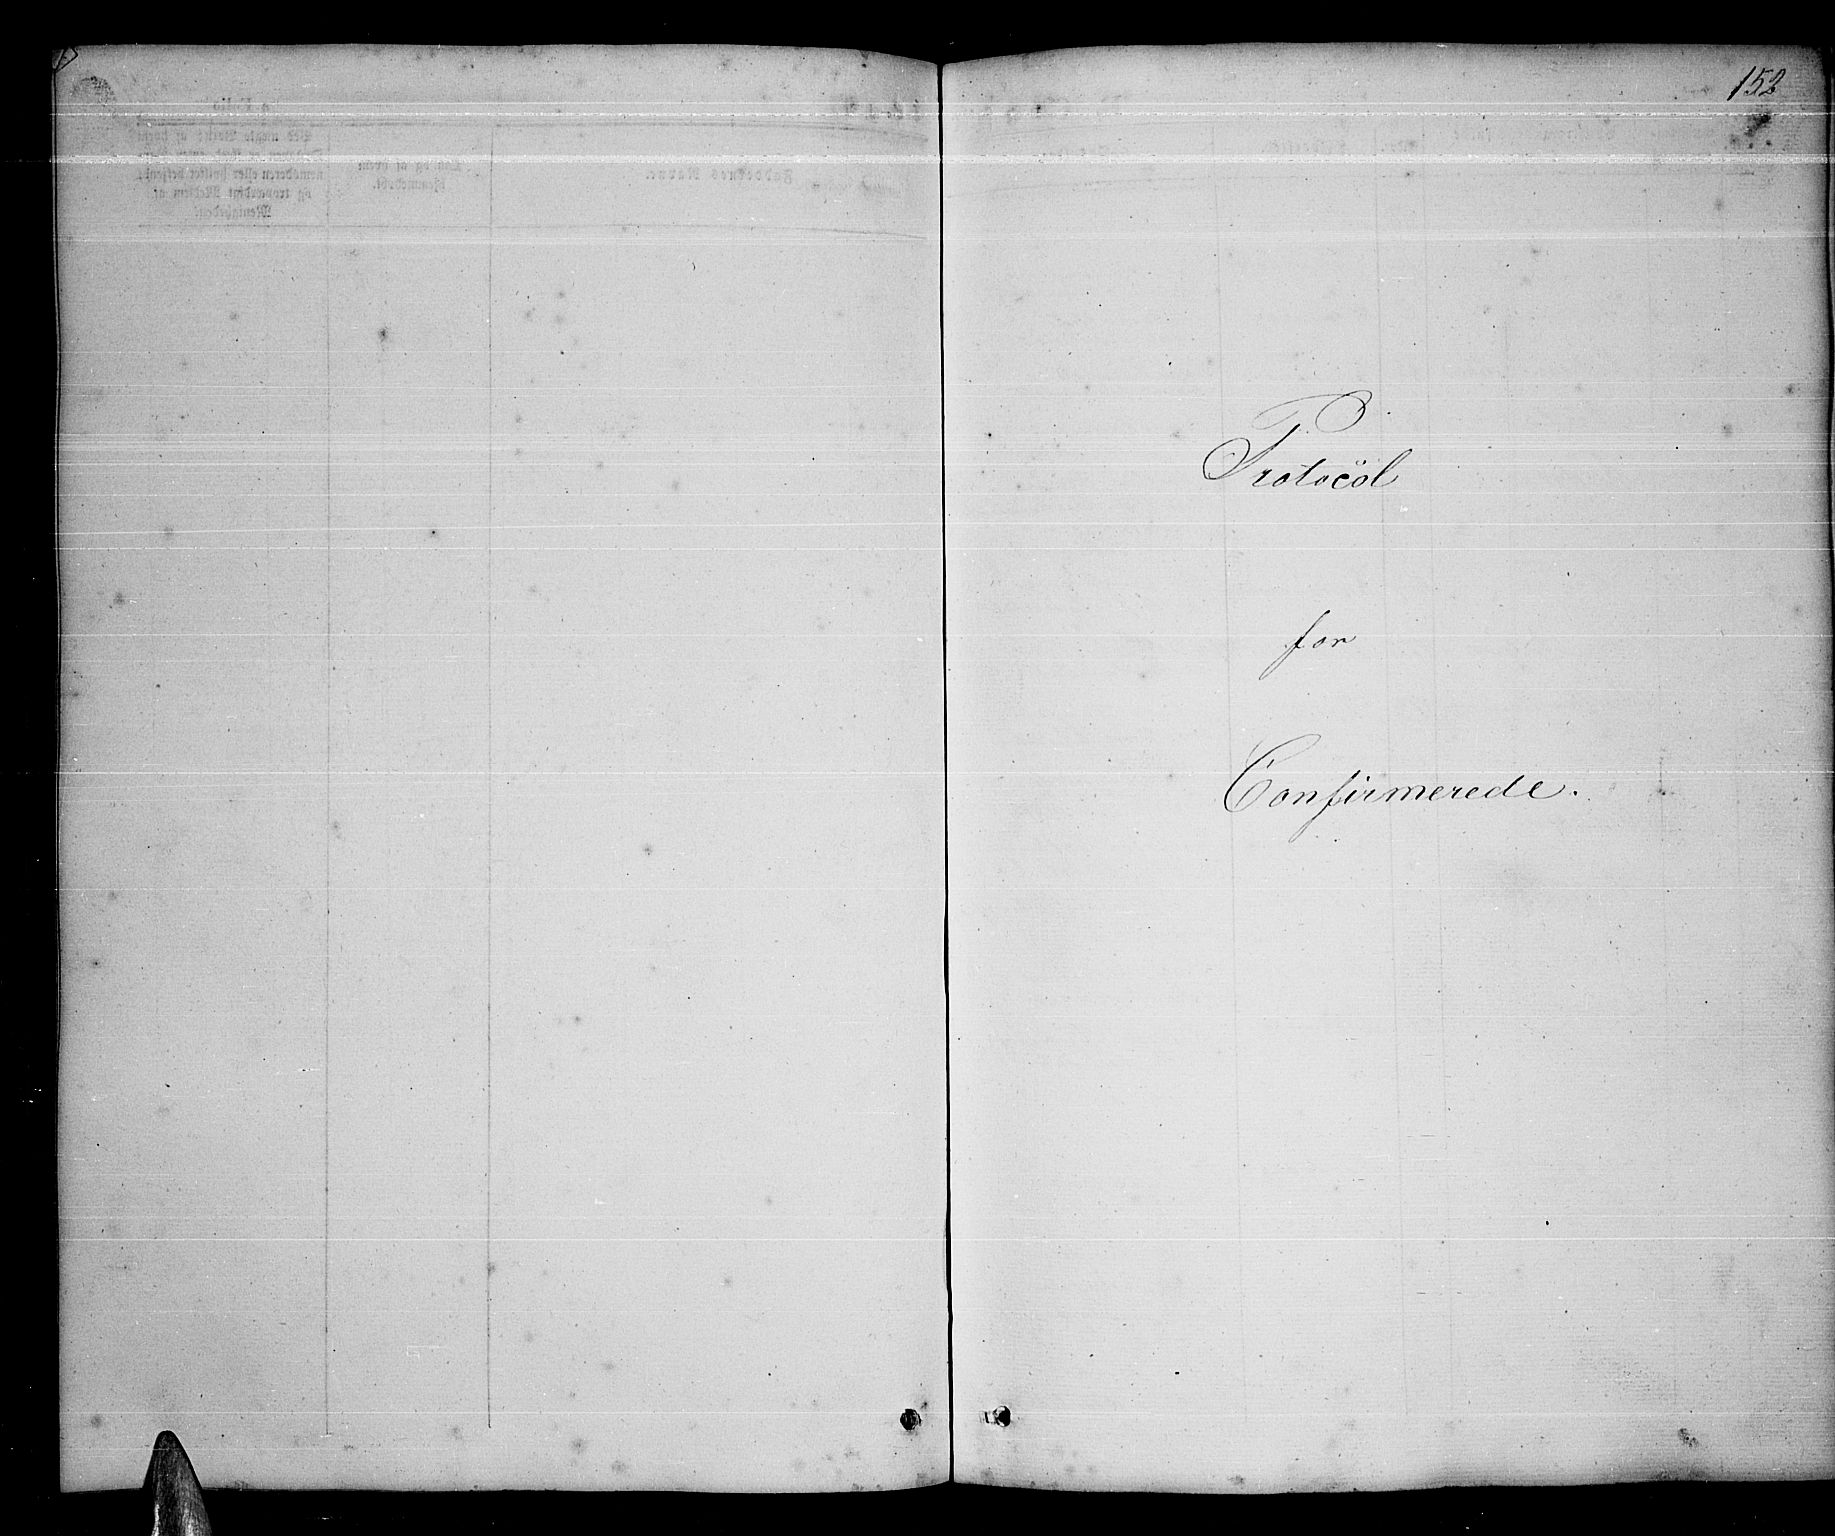 152
Protocol
for
Confirmerede.